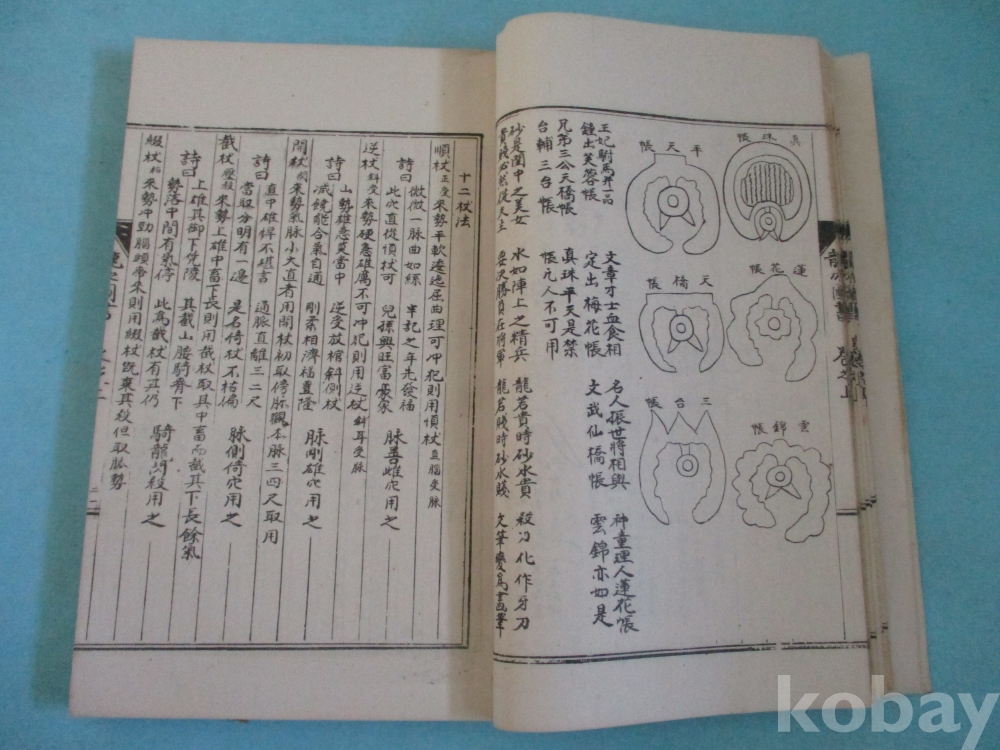 眞珠帳
平天帳
蓮花帳
天橋帳
雲錦帳
三台帳
王妃駙馬井一品
文章才士血食相
名人振世將相與
神童理人蓮花帳
鍾出芙蓉帳
定出梅花帳
文武仙橋帳
雲錦亦如是
兄弟三公天橋帳
眞珠平天是禁
台輔三台帳
帳凡人不可用
砂是閨中之美女
水如陣上之精兵
龍若貴時砂水貴
殺刀化作牙刀
貴賤必然從夫主
要決勝負在將軍
龍若賤時砂水賤
文筆變爲畵筆
十二杖法
順杖正受來勢平軟逶迤屈曲理可冲犯則用順杖直腦受脉
詩曰 微微一脉曲如繰 牢記之年先發福 脉善雌穴用之
此穴直從順杖可 兒孫興旺富豪家
逆杖斜受來勢硬急雄厲不可冲犯則用逆杖斜耳受脉
詩曰 山勢雄急莫當中 逆受放棺斜側杖 脉剛雄穴用之
减饒能合氣自通 剛柔相濟福喜隆
開杖 來勢氣脉小大直者用開杖初取傍 本脉三四尺取用
詩曰 直中雄悍不堪言 通脉直離三二尺 脉側倚穴用之
當取分明有一邊 是名倚杖不枯偏
截杖 來勢上雄中畜下長則用截杖取其中畜而截其下長餘氣
詩曰 上雄其卸下凭陵 其截山腰騎脊下 騎龍 殺用之
勢落中間有氣停 此爲截杖有 仍
綴杖 來勢冲勁腦頭帶來則用綴杖旣棄其殺但取脉勢
kobay